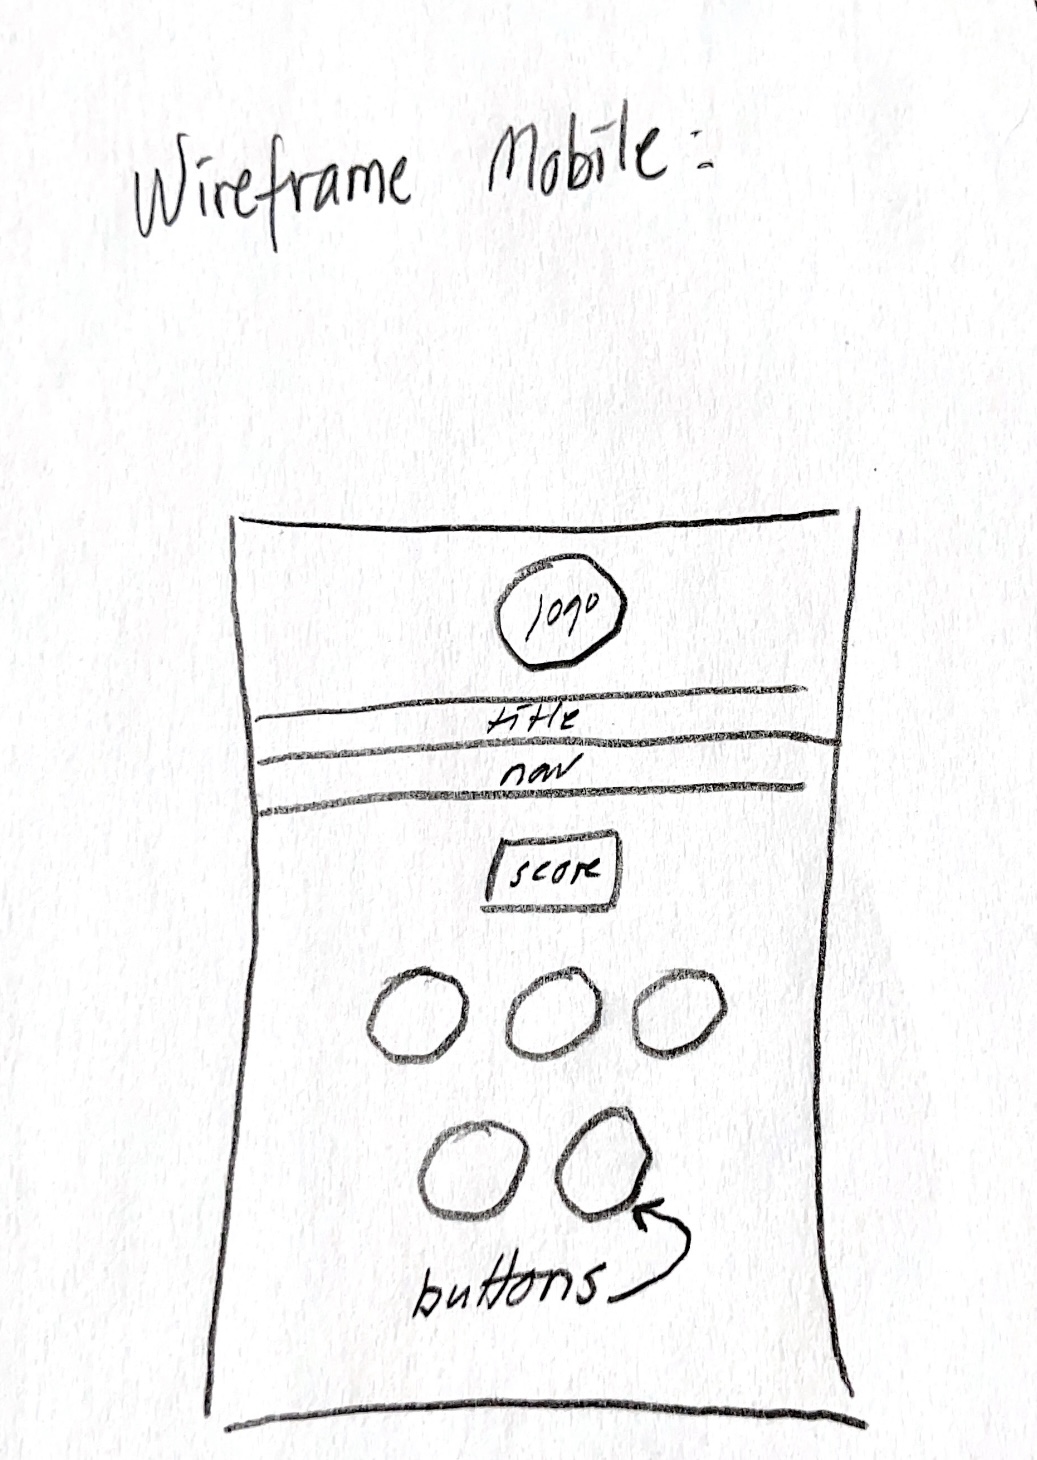 Wireframe Mobile:
logo
title
nav
score
buttons